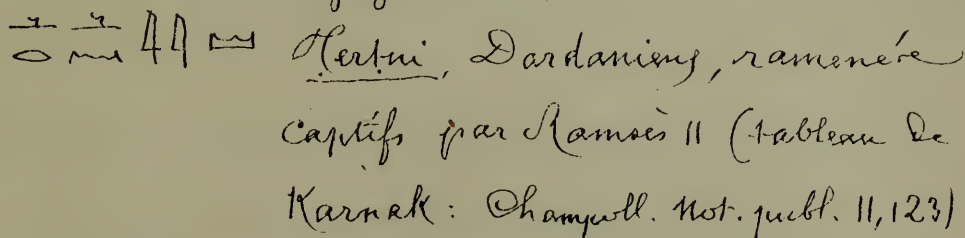 Tertni, Dardaniens, ramenés
captifs par Ramsès II (tableau de
Karnak : Champoll. Not. publ. II, 123)